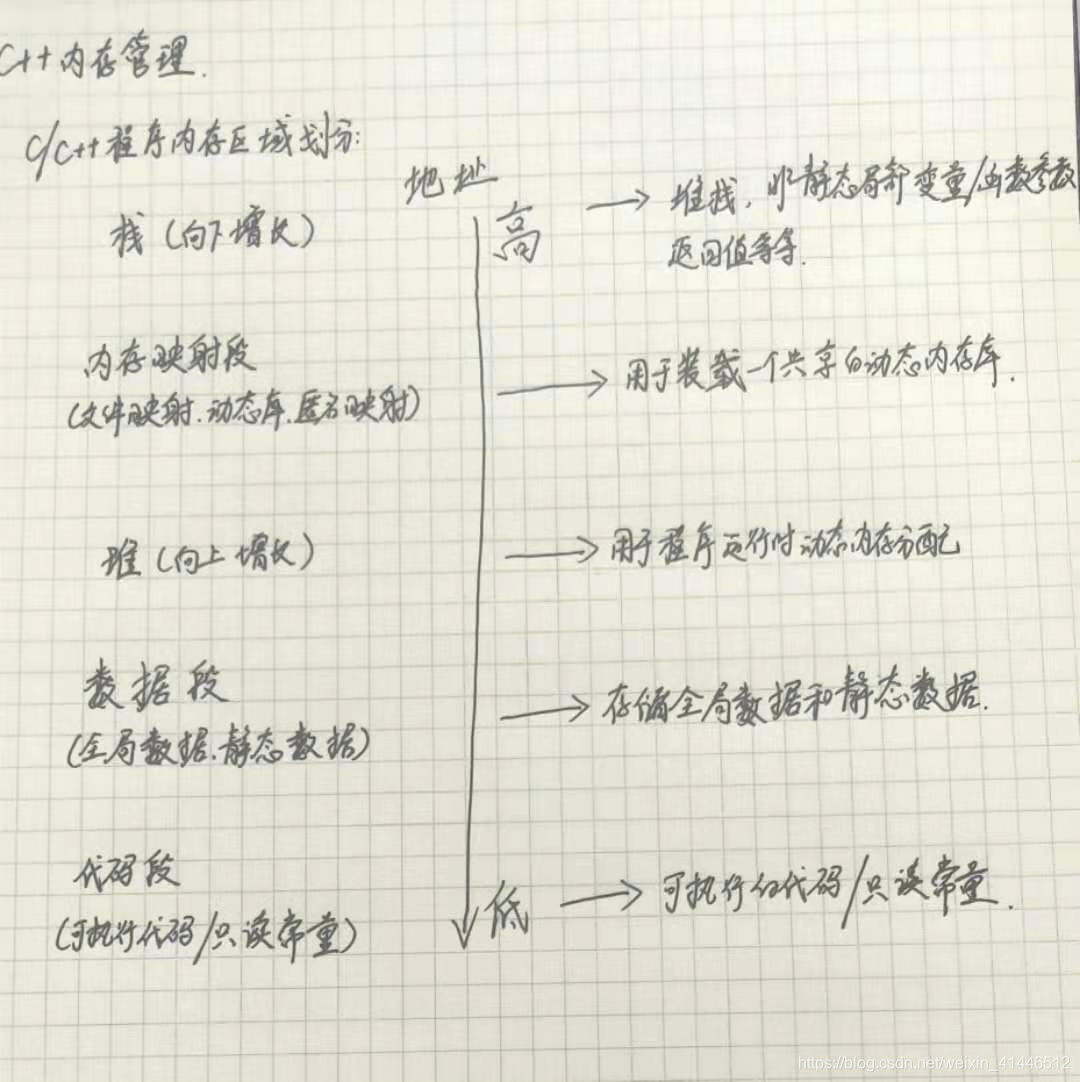 C++内存管理.
C/C++程序内存区域划分:
地址
栈(向下增长)
高
堆栈,非静态局部变量/函数参数
返回值等等.
内存映射段
(文件映射.动态库.匿名映射)
用于装载一个共享的动态内存库.
堆(向上增长)
用于程序运行时动态内存分配
数据段
(全局数据.静态数据)
存储全局数据和静态数据.
代码段
(可执行代码/只读常量)
低
可执行的代码/只读常量.
https://blog.csdn.net/weixin_41446512